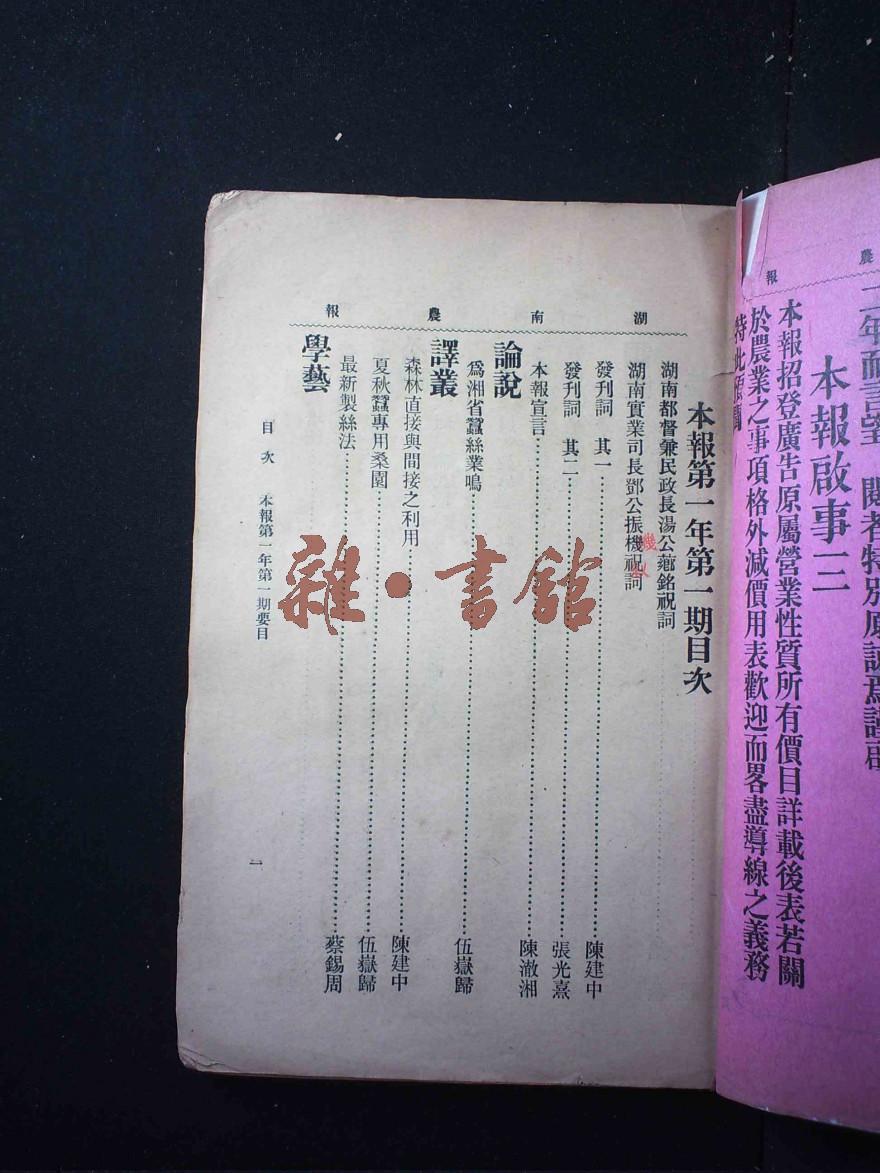 農報
二年而言望 閱者特別原諒焉謹啟
本報啟事三
本報招登廣告原屬營業性質所有價目詳載後表若關
於農業之事項格外減價用表歡迎而畧盡導線之義務
特此
湖南農報
本報第一年第一期目次
湖南都督兼民政長湯公薌銘祝詞
湖南實業司長鄧公振機祝詞
發刊詞 其一 陳建中
發刊詞 其二 張光熹
本報宣言 陳澈湘
論說
爲湘省蠶絲業鳴 伍嶽歸
譯叢
森林直接與間接之利用 陳建中
夏秋蠶專用桑園 伍嶽歸
最新製絲法 蔡錫周
學藝
目次 本報第一年第一期要目
一
雜·書館